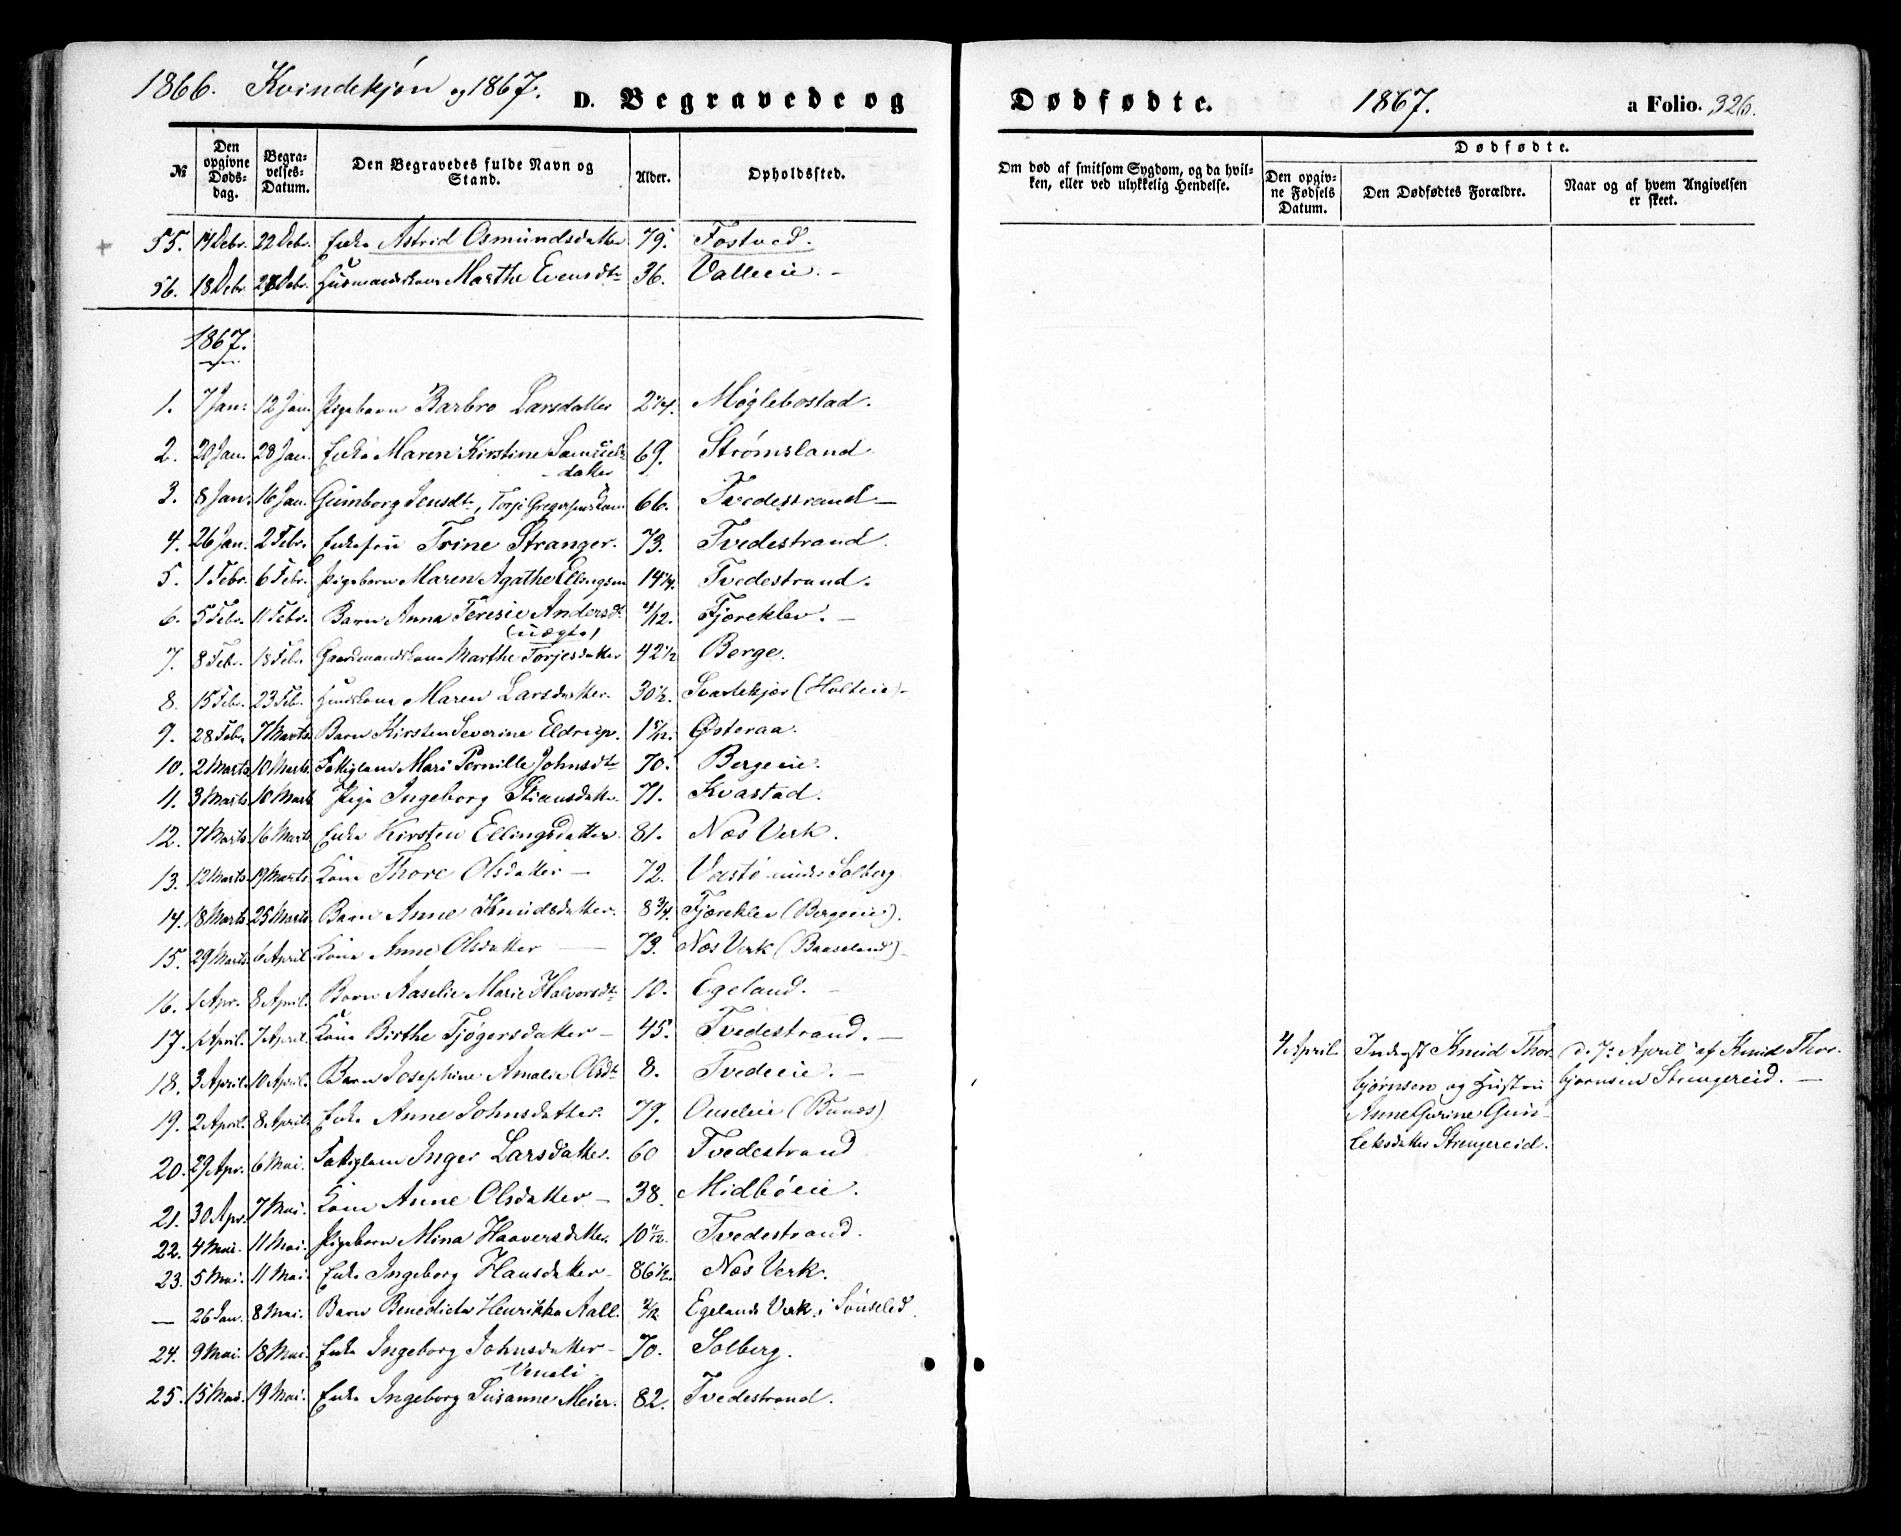 1866. Kvindekjön og 1867. D. Begravede og
Dødfødte. 1867. a Folio. 326.
№ Den opgivne Døds-dag. Begra-velses-Datum. Den Begravedes fulde Navn og Stand. Alder. Opholdssted.
Om død af smitsom Sygdom, og da hvil-ken, eller ved ulykkelig Hendelse. Dødfødte. Den opgiv-ne Fødsels Datum. Den Dødfødtes Forældre. Naar og af hvem Angivelsen er skeet.
55. 14 Debr. 22 Debr. Enke Astrid Osmundsdatter 79. Fostved.
56. 18 Debr. 27 Debr. Husmandskone Marthe Evensdtr 36. Valleeie. –
1867.
1. 7 Jan. 12 Jan. Pigebarn Barbro Larsdatter 2 1/4. Møglebostad.
2. 20 Jan. 28 Jan. Enke Maren Kirstine Samuels-
datter 69. Strømsland.
3. 8 Jan. 16 Jan. Gunborg Jensdtr, Torje Gregersens Kone 66. Tvedestrand –
4. 26 Jan. 2 Febr. Enkefru Trine Stranger. 73. Tvedestrand.
5. 1 Febr. 6 Febr. Pigebarn Maren Agathe Ellingsen 14 1/4. Tvedestrand.
6. 5 Febr. 11 Febr. Barn Anna Teresie Andersdt. 4/12. Fjæreklev. –
(uægte)
7. 8 Febr. 18 Febr. Gaardmandskone Marthe Torjesdatter 42 1/2 Berge.
8. 15 Febr. 23 Feb. Maren Larsdatter. 30 1/2. Svartekjær (Holteie) –
9. 28 Feb. 7 Marts. Barn Kirsten Severine Eldrup. 1 5/12. Østeraa.
10. 2 Marts 10 Marts. Fattiglem Mari Pernille Johnsdtr 70. Bergeeie.
11. 3 Marts 10 Marts Pige Ingeborg Stiansdatter 71. Kvastad.
12. 7 Marts 16 Marts Enke Kirsten Ellingsdatter. 81. Næs Verk.
13. 12 Marts 19 Marts Kone Thore Olsdatter – 72. Vastø under Solberg
14. 18 Marts 25 Marts Barn Anne Knudsdatter. 8 3/4. Fjæreklev (Bergeeie).
15. 29 Marts 6 April Kone Anne Olsdatter – 73. Næs Verk (Baaseland) –
16. 1 Apr. 8 April. Barn Aaselie Marie Halvorsdtr 10. Egeland. –
17. 1 April. 7 April. Kone Birthe Tjøgersdatter – 45. Tvedestrand. –
18. 3 April. 10 April. Barn Josephine Amalie Olsdtr 8. Tvedeeie. –
19. 2 April. 8 April. Enke Anne Johnsdatter. 79. Ouseleie (Bunæs)
20. 29 Apr. 6 Mai. Fattiglem Inger Larsdatter. 60 Tvedestrand
21. 30 Apr. 7 Mai. Kone Anne Olsdatter – 38. Midbøeie.
22. 4 Mai. 11 Mai. Pigebarn Mina Haaversdatter. 10 11/12. Tvedestrand.
23. 5 Mai. 11 Mai. Enke Ingeborg Hansdatter – 86 1/2. Næs Verk.
– 26 Jan. 8 Mai. Barn Benedicte Henrikke Aall. 2/12 Egelands Verk, i Søndeled.
24. 9 Mai. 18 Mai. Enke Ingeborg Johnsdatter – 70. Solberg.
Veneli
25. 15 Mai. 19 Mai. Enke Ingeborg Susanne Meier. 82. Tvedestrand.
4 April. Inderst Knud Thor-
bjørnsen og Hustru
Anne Gurine Gun-
leksdatter Strengereid.
d. 7de April af Knud Thor-
bjørnsen Strengereid. –